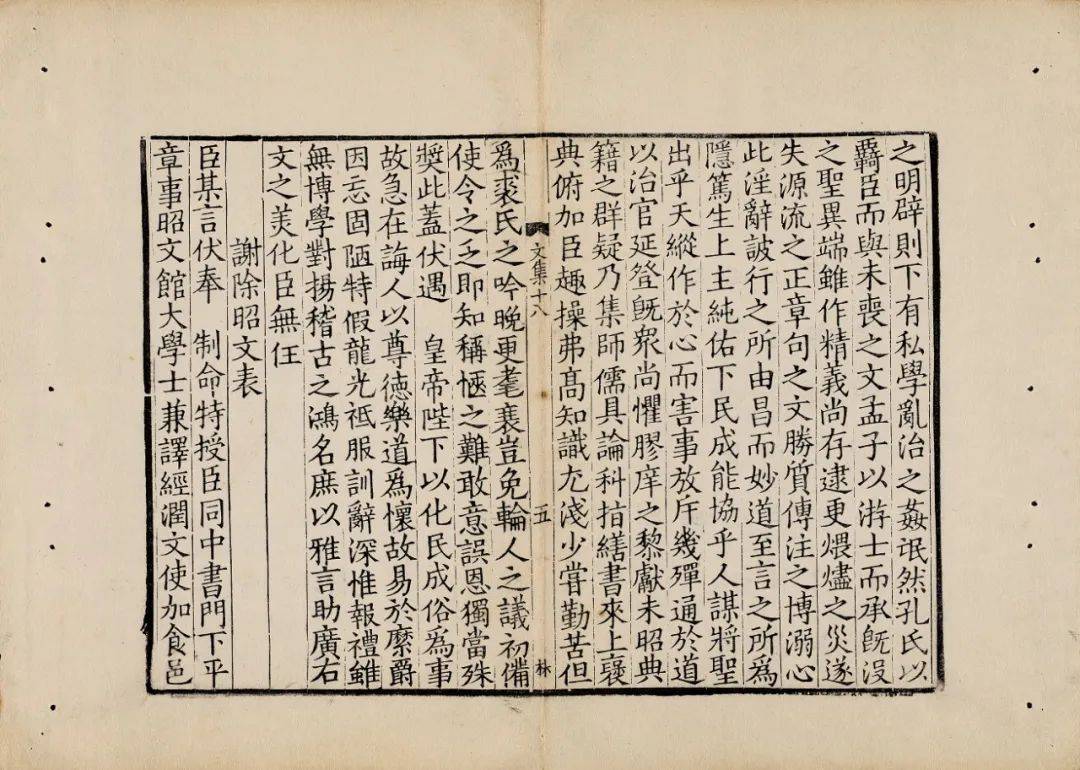 之明辟則下有私學亂治之姦氓然孔氏以
羇臣而與未喪之文孟子以游士而承旣沒
之聖異端雖作精義尚存逮更煨燼之災遂
失源流之正章句之文勝質傳注之博溺心
此淫辭詖行之所由昌而妙道至言之所爲
隱篤生上主純佑下民成能協乎人謀將聖
出乎天縱作於心而害事放斥幾殫通於道
以治官延登旣衆尚懼膠庠之黎獻未昭典
籍之群疑乃集師儒具論科指繕書來上褎
典俯加臣趣操弗髙知識尤淺少嘗勤苦但
文集十八
五
林
爲裘氏之吟晚更耄衰豈免輪人之議初備
使令之乏即知稱愜之難敢意誤恩獨當殊
奬此蓋伏遇 皇帝陛下以化民成俗爲事
故急在誨人以尊徳樂道爲懷故易於縻爵
因忘固陋特假龍光祗服訓辭深惟報禮雖
無博學對揚稽古之鴻名庶以雅言助廣右
文之美化臣無任
謝除昭文表
臣某言伏奉 制命特授臣同中書門下平
章事昭文館大學士兼譯經潤文使加食邑